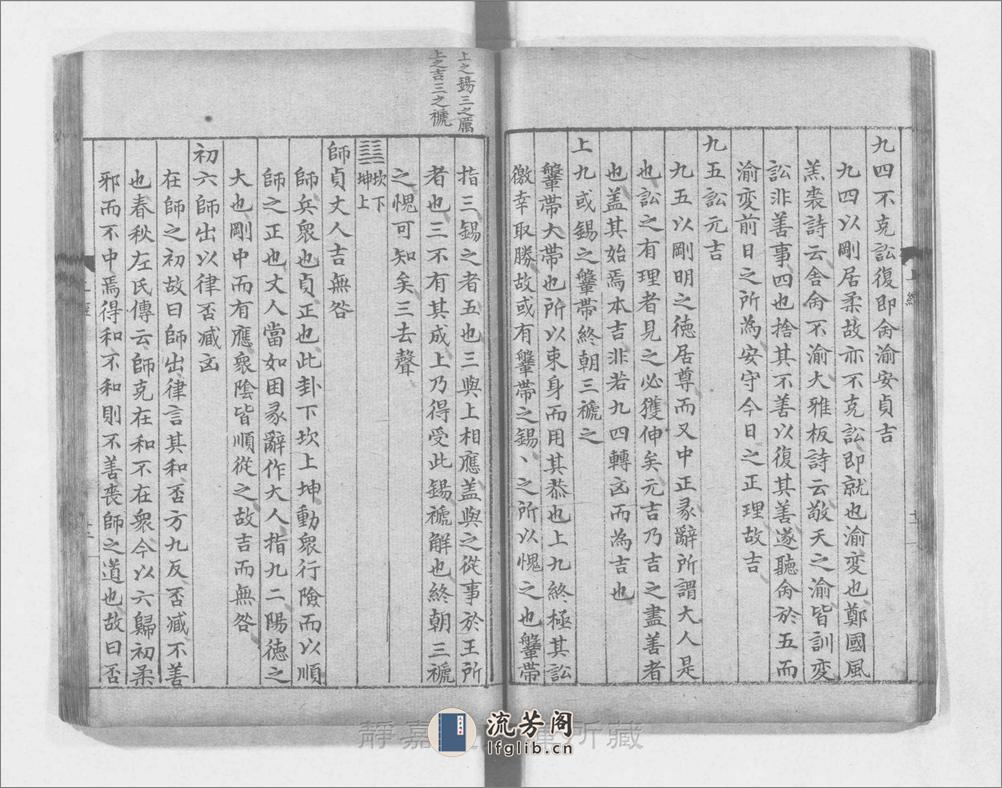 九四不克訟復即命渝安貞吉
九四以剛居柔故亦不克訟即就也渝变也鄭國風
羔裘詩云舍命不渝大雅板詩云敬天之渝皆訓变
訟非善事四也捨其不善以復其善遂聽命於五而
渝变前日之所為安守今日之正理故吉
九五訟元吉
九五以剛明之德居尊而又中正彖辭所謂大人是
也訟之有理者見之必獲伸矣元吉乃吉之盡善者
也盖其始焉本吉非若九四轉凶而為吉也
上九或錫之鞶帶終朝三褫之
鞶帶大帶也所以束身而用其恭也上九終極其訟
徼幸取勝故或有鞶帶之錫、之所以愧之也鞶帶
上之錫三之厲
上之吉三之褫
指三錫之者五也三與上相應盖與之從事於王所
者也三不有其成上乃得受此錫褫解也終朝三褫
之愧可知矣三去聲
坎下
坤上
師貞丈人吉無咎
師兵衆也貞正也此卦下坎上坤動衆行險而以順
師之正也丈人當如困彖辭作大人指九二陽德之
大也剛中而有應衆陰皆順從之故吉而無咎
初六師出以律否臧凶
在師之初故曰師出律言其和否方九反否臧不善
也春秋左氏傳云師克在和不在衆今以六歸初柔
邪而不中焉得和不和則不善喪師之道也故曰否
上經
靜嘉
所藏
流芳阁
lfglib.cn